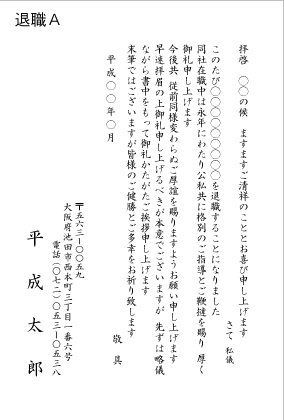 退職A
拝啓　○○の候　ますますご清祥のこととお喜び申し上げます
さて 私儀
このたび○○○○○○○○を退職することになりました
同社在職中は永年にわたり公私共に格別のご指導とご鞭撻を賜り 厚く
御礼申し上げます
今後共 従前同様変わらぬご厚誼を賜りますようお願い申し上げます
早速拝眉の上御礼申し上げるべきが本意でございますが 先ずは略儀
ながら書中をもって御礼かたがたご挨拶申し上げます
末筆ではございますが皆様のご健勝とご多幸をお祈り致します
敬具
平成○○年○月
〒五六三―〇〇五九
大阪府池田市西本町三丁目一番六号
電話(〇七二)〇五三―〇五三八
平成太郎